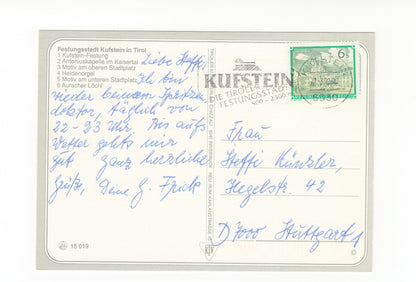 Festungsstadt Kufstein in Tirol
1 Kufstein-Festung
2 Antoniuskapelle im Kaisertal
3 Motiv am oberen Stadtplatz
4 Heldenorgel
5 Motiv am unteren Stadtplatz
6 Auracher Löchl
Liebe Steffi,
Ich bin
wieder beim Spritzen
doktor, täglich von
22-23 Uhr. Bis aufs
Wetter gehts mir
gut ganz herzliche
Grüße, Deine G.
15 019
KUFSTEIN
DIE TIROLER
FESTUNGSSTADT
6330
6 S
Frau
Steffi Künzler,
Hegelstr. 42
D 7000 Stuttgart 1
©